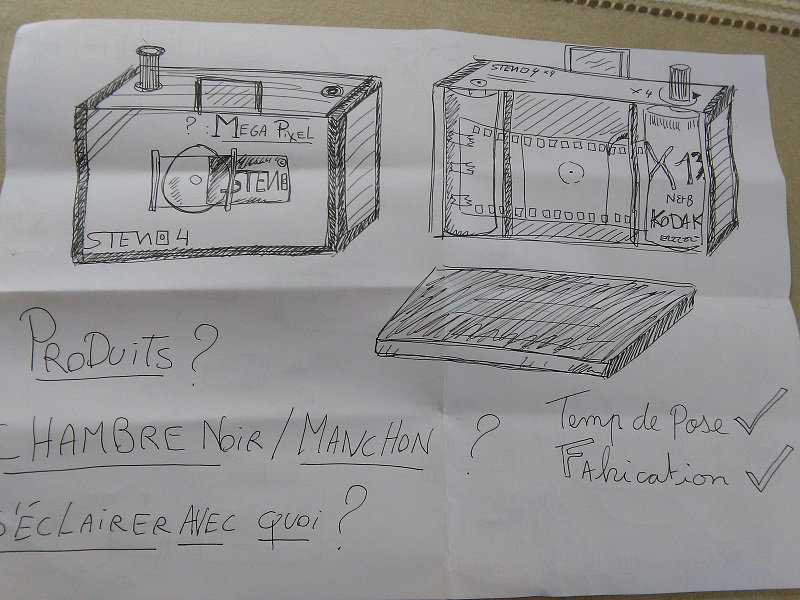 ? : MEGA PIXEL
STENO
STENO 4
STENO 4 x4
x 4
X 13
N&B
KODAK
PRODUITS ?
CHAMBRE NOIR / MANCHON ?
S'ÉCLAIRER AVEC QUOI ?
Temp de Pose
FAbrication